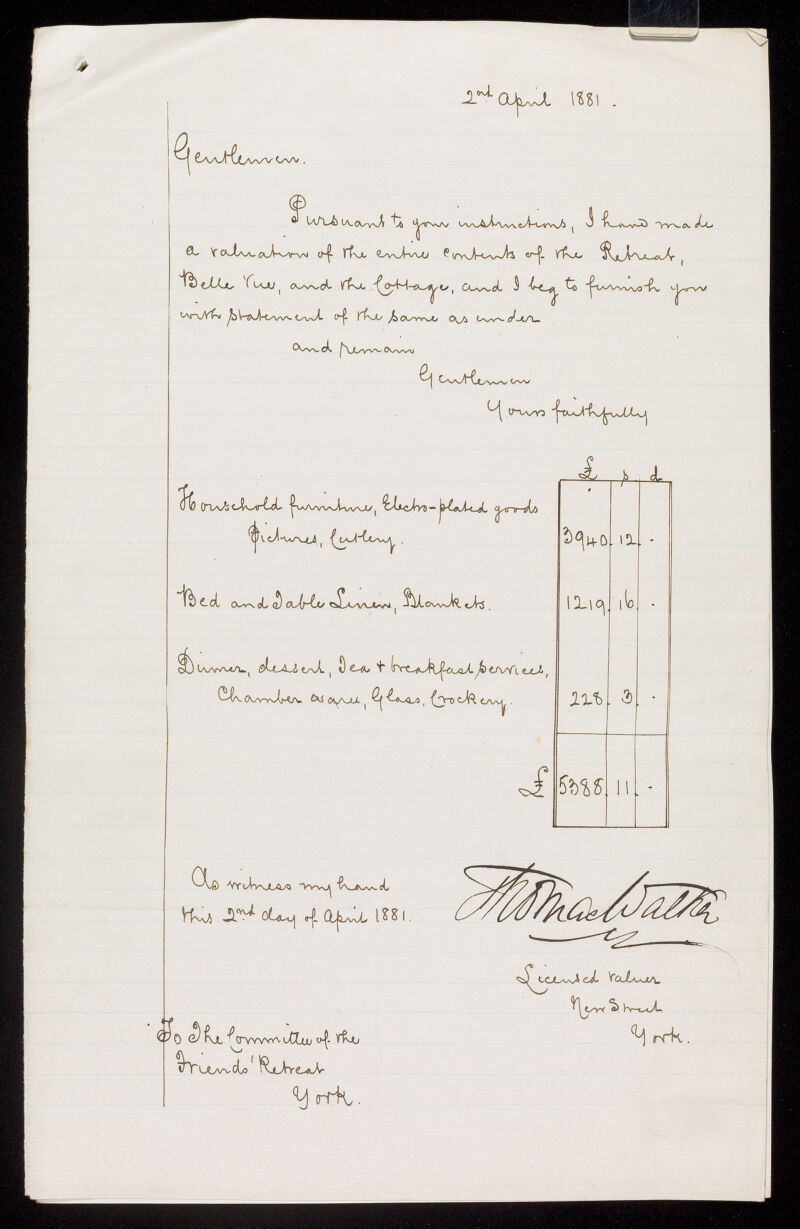 2nd April 1881.
Gentlemen.
Pursuant to your instructions, I have made
a valuation of the entire contents of the Retreat,
Belle Vue, and the Cottage, and I beg to furnish you
with statement of the same as under
and remain
Gentlemen
Yours faithfully
£ s d
Household furniture, Electro-plated goods
Pictures, Cutlery. 3940. 12. -
Bed and Table Linen, Blankets. 1219. 16. -
Dinner, dessert, Tea & breakfast services,
Chamber ware, Glass, Crockery. 228. 3. -
£ 5388. 11. -
As witness my hand
this 2nd day of April 1881.
Thomas Walker
Licensed Valuer
New Street
York.
To The Committee of the
Friends' Retreat
York.